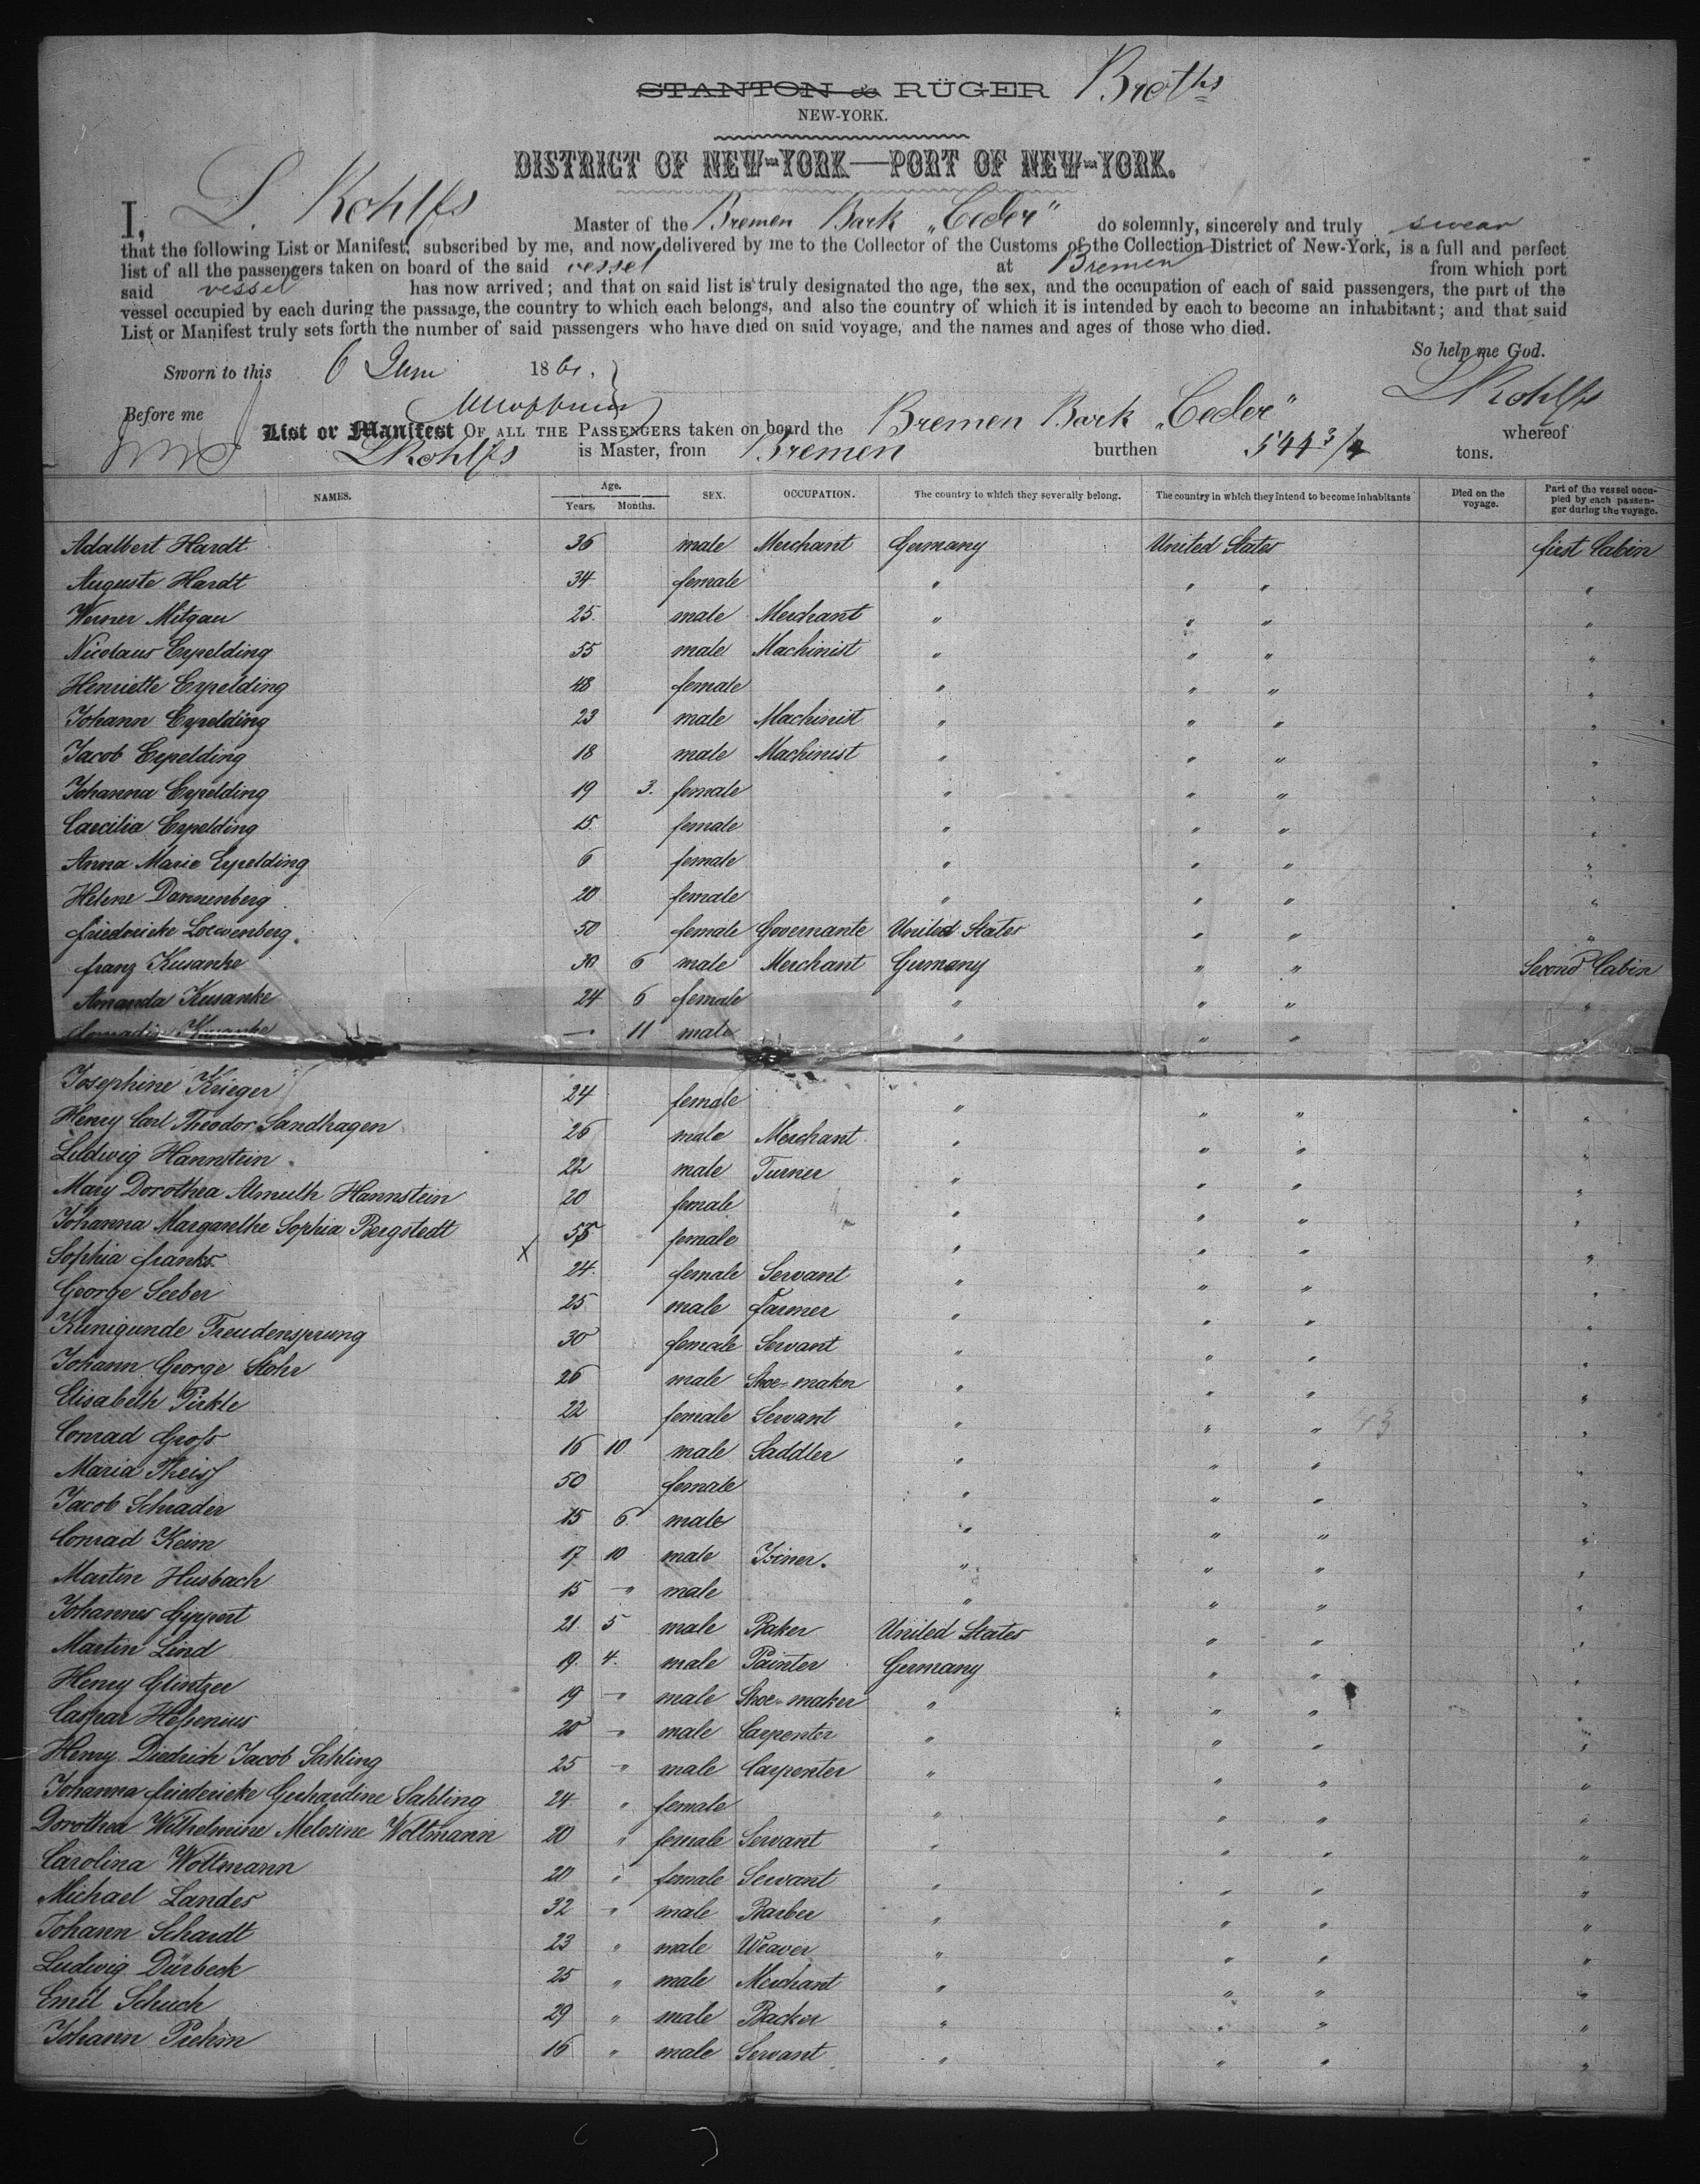 STANTON & RÜGER Broths
NEW-YORK.
DISTRICT OF NEW-YORK—PORT OF NEW-YORK.
I, L. Kohlfs Master of the Bremen Bark „Ceder" do solemnly, sincerely and truly swear
that the following List or Manifest, subscribed by me, and now delivered by me to the Collector of the Customs of the Collection District of New-York, is a full and perfect
list of all the passengers taken on board of the said vessel at Bremen from which port
said vessel has now arrived; and that on said list is truly designated the age, the sex, and the occupation of each of said passengers, the part of the
vessel occupied by each during the passage, the country to which each belongs, and also the country of which it is intended by each to become an inhabitant; and that said
List or Manifest truly sets forth the number of said passengers who have died on said voyage, and the names and ages of those who died.
So help me God.
Sworn to this 6 Juni 1861. L Kohlfs
Before me
List or Manifest OF ALL THE PASSENGERS taken on board the Bremen Bark „Ceder" whereof
L Kohlfs is Master, from Bremen burthen 544 3/4 tons.
NAMES. Age. Years. Months. SEX. OCCUPATION. The country to which they severally belong. The country in which they intend to become inhabitants Died on the voyage. Part of the vessel occupied by each passenger during the voyage.
Adalbert Hardt 36 male Merchant Germany United States first Cabin
Auguste Hardt 34 female " " " "
Werner Mitgau 25 male Merchant " " " "
Nicolaus Eypelding 55 male Machinist " " " "
Henriette Eypelding 48 female " " " "
Johann Eypelding 23 male Machinist " " " "
Jacob Eypelding 18 male Machinist " " " "
Johanna Eypelding 19 3. female " " " "
Caecilia Eypelding 15 female " " " "
Anna Marie Eypelding 6 female " " " "
Helene Dannenberg 20 female " " " "
friedericke Loewenberg. 50 female Governante United States " " "
franz Kusanke 30 6 male Merchant Germany " " Second Cabin
Amanda Kusanke 24 6 female " " " "
Kusanke — 11 male " " " "
Josephine Krieger 24 female " " " "
Henry Carl Theodor Sandhagen 26 male Merchant " " " "
Ludwig Hannstein 22 male Turner " " " "
Mary Dorothea Almuth Hannstein 20 female " " " "
Johanna Margarethe Sophia Bergstedt 55 female " " " "
Sophia franks X 24. female Servant " " " "
George Seeber 25 male farmer " " " "
Kunigunde Freudensprung 30 female Servant " " " "
Johann George Stohr 26 male Shoe-maker " " " "
Elisabeth Pirkle 22 female Servant " " " "
Conrad Groß 16 10 male Saddler " " " "
Maria Theiß 50 female " " " "
Jacob Schrader 15 6 male " " " "
Conrad Keim 17 10 male Joiner. " " " "
Martin Husbach 15 " male " " " "
Johannes Gippert 21 5 male Baker United States " " "
Martin Lind 19. 4. male Painter Germany " " "
Henry Glintzer 19 " male Shoe-maker " " " "
Caspar Heßenius 20 " male Carpenter " " " "
Henry Diedrich Jacob Sahling 25 " male Carpenter " " " "
Johanna friedericke Gerhardine Sahling 24 " female " " " "
Dorothea Wilhelmine Melosine Woltmann 20 " female Servant " " " "
Carolina Woltmann 20 " female Servant " " " "
Michael Landes 32 " male Barber " " " "
Johann Schardt 23 " male Weaver " " " "
Ludwig Dürbeck 25 " male Merchant " " " "
Emil Schuch 29 " male Backer " " " "
Johann Prehm 16 " male Servant " " " "